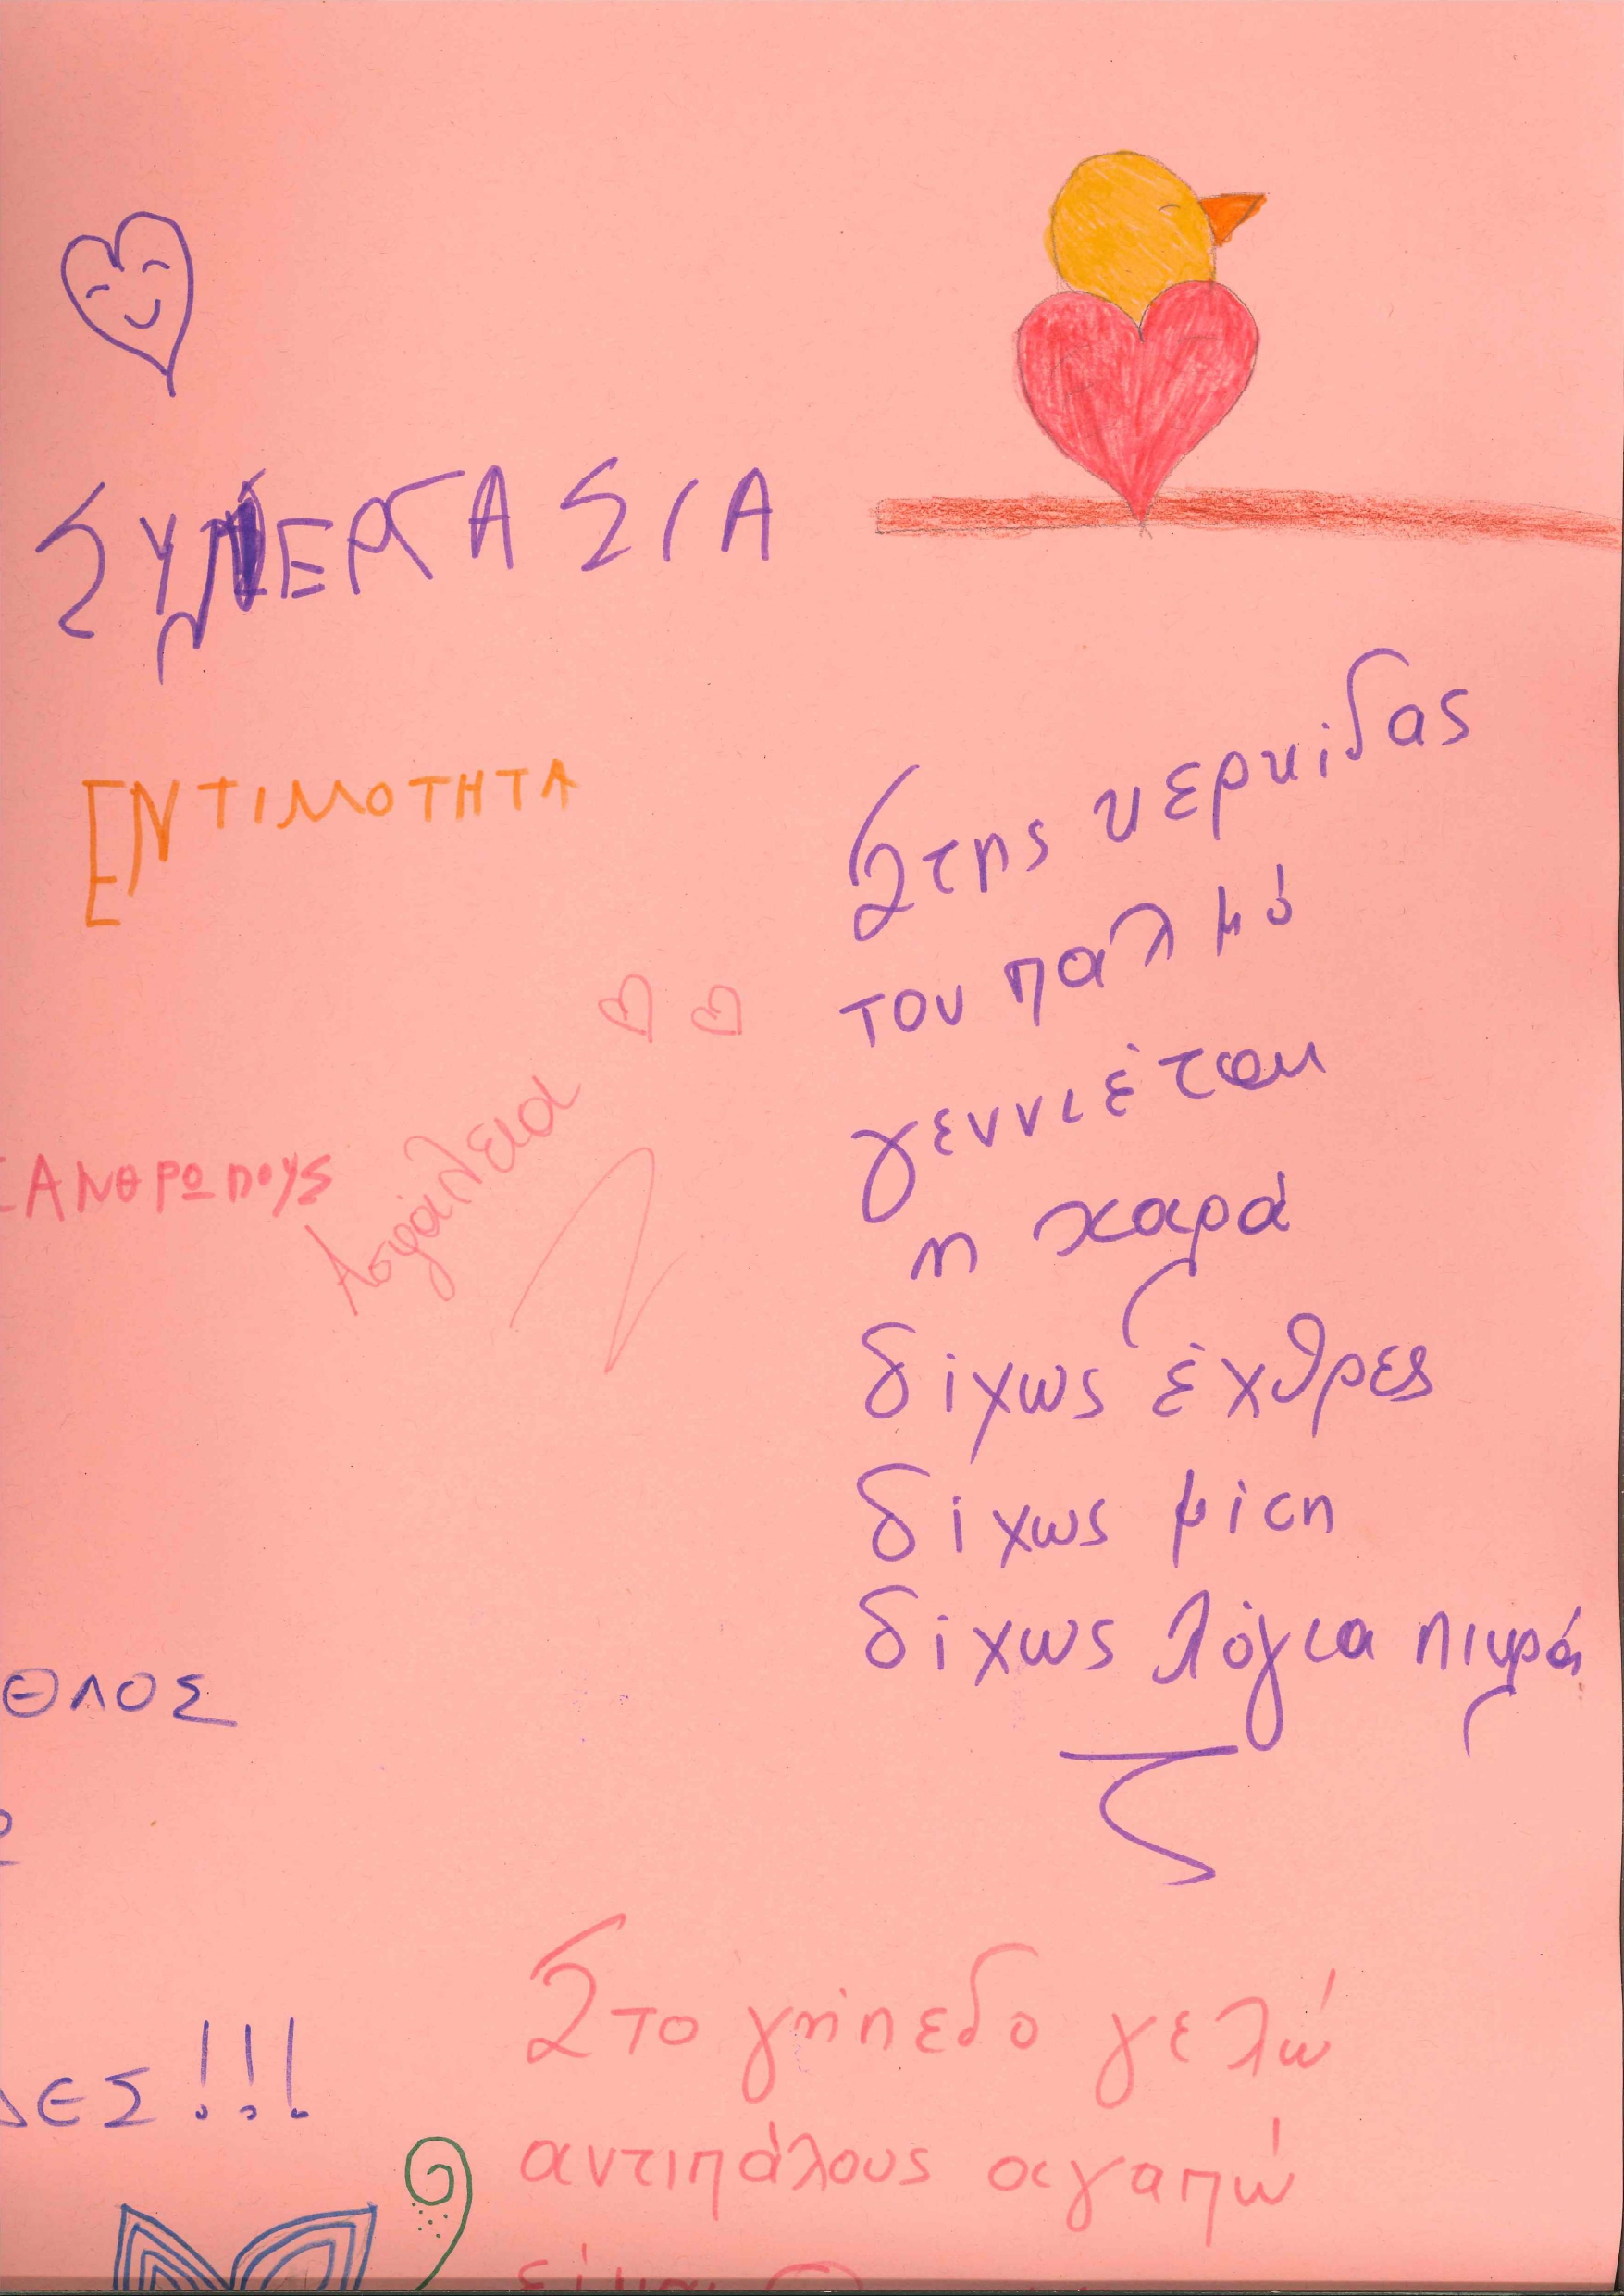 ΣΥΝΕΡΓΑΣΙΑ
ΕΝΤΙΜΟΤΗΤΑ
Ασφάλεια
ΑΝΘΡΩΠΟΥΣ
ΘΛΟΣ
ΔΕΣ!!!
Στης κερκίδας
τον παλμό
γεννιέται
η χαρά
δίχως έχθρες
δίχως μίση
δίχως λόγια πικρά
Στο γήπεδο γελώ
αντιπάλους αγαπώ
είμαι